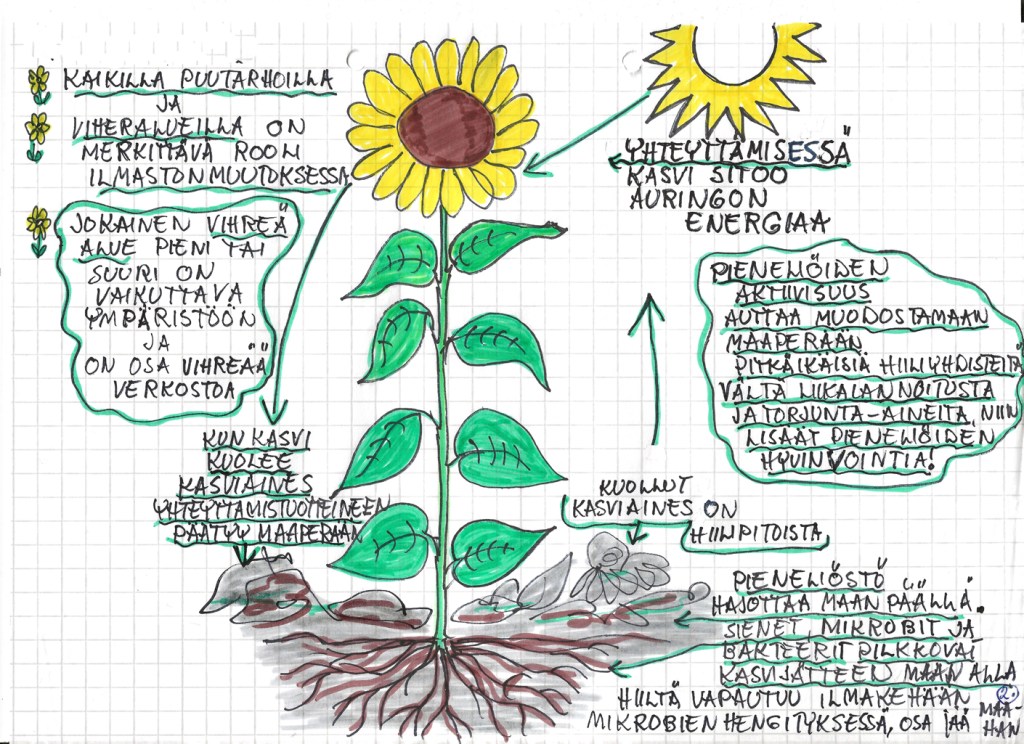 KAIKILLA PUUTARHOILLA
JA
VIHERALUEILLA ON
MERKITTÄVÄ ROOLI
ILMASTONMUUTOKSESSA
JOKAINEN VIHREÄ
ALUE PIENI TAI
SUURI ON
VAIKUTTAVA
YMPÄRISTÖÖN
JA
ON OSA VIHREÄÄ
VERKOSTOA
YHTEYTTÄMISESSÄ
KASVI SITOO
AURINGON
ENERGIAA
PIENELIÖIDEN
AKTIIVISUUS
AUTTAA MUODOSTAMAAN
MAAPERÄÄN
PITKÄIKÄISIÄ HIILIYHDISTEITÄ
VÄLTÄ LIIKALANNOITUSTA
JA TORJUNTA-AINEITA, NIIN
LISÄÄT PIENELIÖIDEN
HYVINVOINTIA!
KUN KASVI
KUOLEE
KASVIAINES
YHTEYTTÄMISTUOTTEINEEN
PÄÄTYY MAAPERÄÄN
KUOLLUT
KASVIAINES ON
HIILIPITOISTA
PIENELIÖSTÖ
HAJOTTAA MAAN PÄÄLLÄ.
SIENET, MIKROBIT JA
BAKTEERIT PILKKOVAT
KASVIJÄTTEEN MAAN ALLA
HIILTÄ VAPAUTUU ILMAKEHÄÄN
MIKROBIEN HENGITYKSESSÄ, OSA JÄÄ
MAA-
HAN
2.